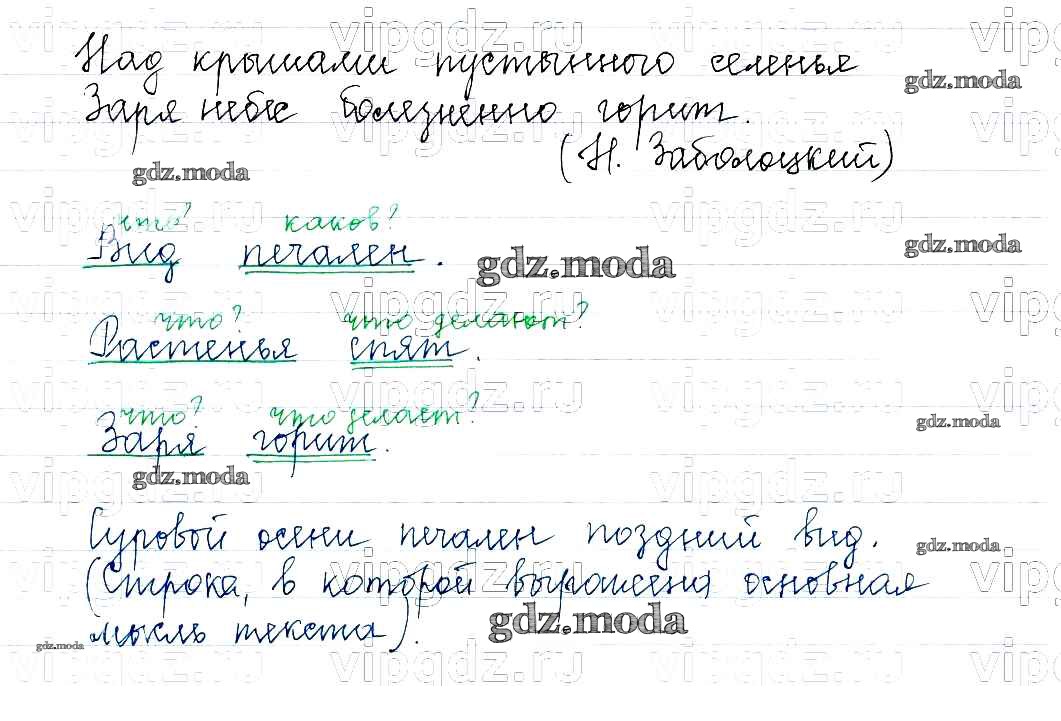 Над крышами пустынного селенья
Заря небес болезненно горит.
(Н. Заболоцкий)
что? каков?
Вид печален.
что? что делают?
Растенья спят.
что? что делает?
Заря горит.
Суровой осени печален поздний вид.
(Строка, в которой выражена основная
мысль текста).
gdz.moda
vipgdz.ru